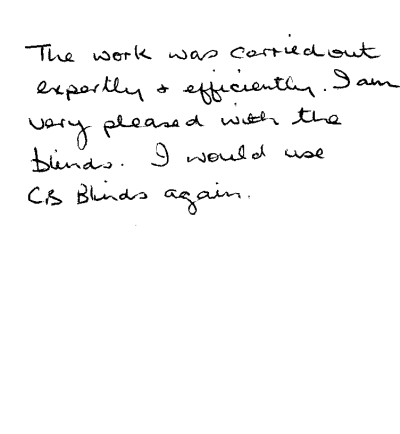 The work was carried out
expertly & efficiently. I am
very pleased with the
blinds. I would use
CB Blinds again.